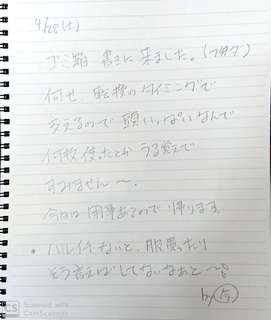 4/28(土)
ゴミ箱 書きに来ました。(フタグ)
何せ 転換のタイミングで
変えるので 頭いっぱいなんで
何枚使ったとか うる覚えで
すみません〜。
今日は 用事あるので 帰ります。
ハルイチないと、服買ったり
そう言えばしてないなぁと〜
by
Scanned with
CamScanner